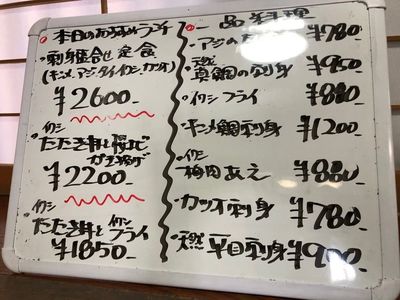 本日のおすすめランチ
・刺身盛合せ定食
(キンメ、アジ、タイ、イワシ、カツオ)
¥2600-
イワシ
・たたき丼と桜えび
かき揚げ
¥2200-
イワシ
・たたき丼とイワシフライ
¥1850-
一品料理
・アジの ¥780-
・天然真鯛の刺身 ¥950-
・イワシフライ ¥880-
・キンメ鯛刺身 ¥1200
・イワシ梅肉あえ ¥880-
・カツオ刺身 ¥780-
・天然平目刺身 ¥900-